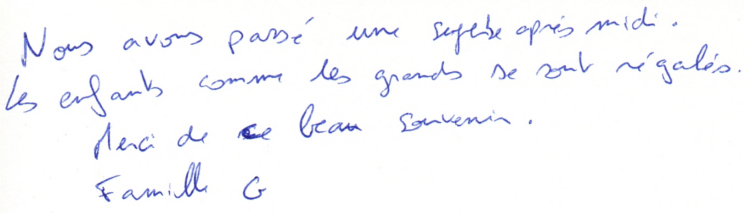 Nous avons passé une superbe après midi.
Les enfants comme les grands se sont régalés.
Merci de ce beau souvenir.
Famille G